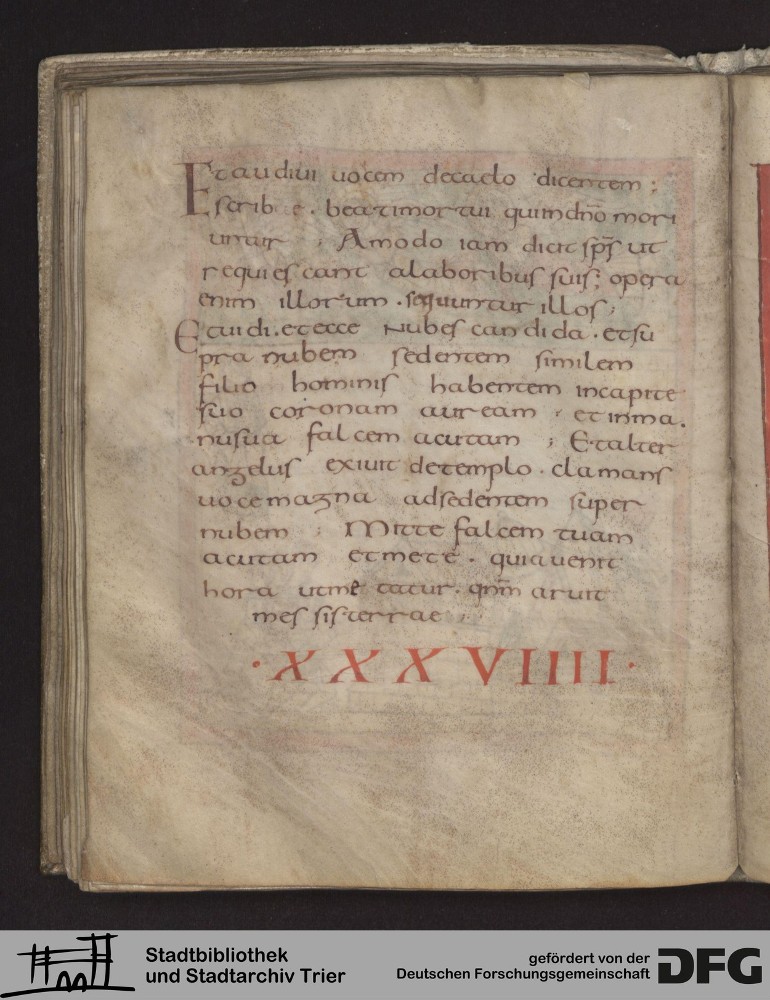 Et audiui uocem decaelo dicentem ;
scribe . beati mortui quiindño mori
untur ; Amodo iam dicit sp̄s ut
requiescant alaboribus suis ; opera
enim illorum . sequuntur illos ;
Et uidi . et ecce Nubes candida . et su
pra nubem sedentem similem
filio hominis habentem incapite
suo coronam auream ; et inma .
nusua falcem acutam ; Et alter
angelus exiuit detemplo . clamans
uocemagna adsedentem super
nubem ; Mitte falcem tuam
acutam et mete . quiauenit
hora utmetatur . qnm̄ aruit
messis terrae ;
· XXXVIIII ·
Stadtbibliothek
und Stadtarchiv Trier
gefördert von der
Deutschen Forschungsgemeinschaft
DFG